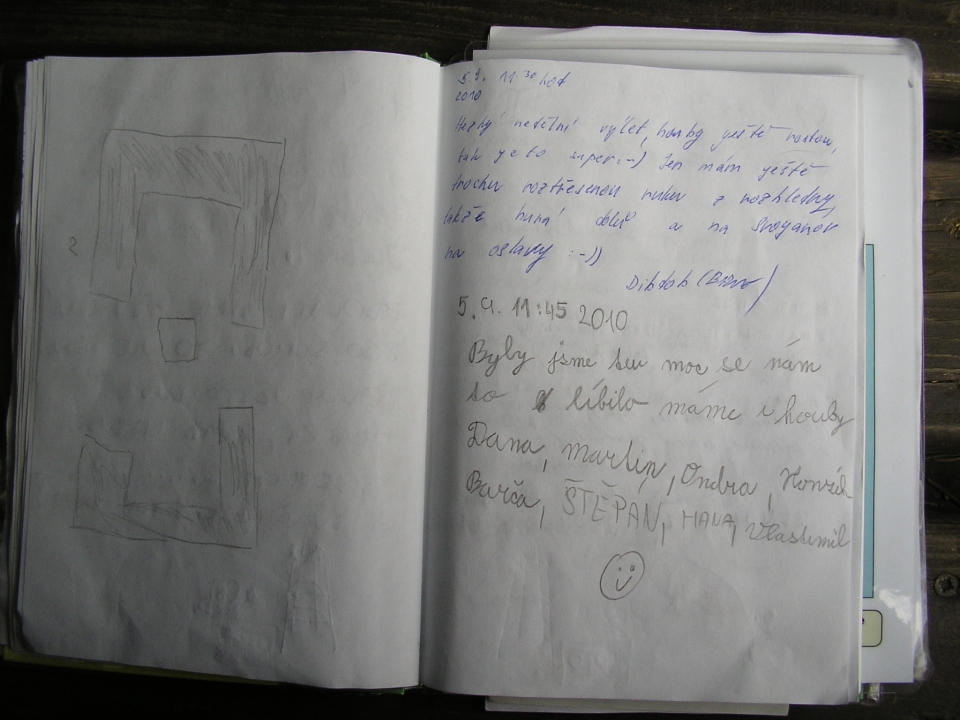 5.9. 11³⁰ hod
2010
Hezký nedělní výlet, houby ještě rostou,
tak je to super :-) Jen mám ještě
trochu roztřesenou ruku z rozhledny,
takže hurá dolů a na Svojanov
na oslavy :-))
(Brno)
5. 9. 11:45 2010
Byly jsme tu moc se nám
to líbilo máme i houby
Dana, Martin, Ondra, Honzík
Barča, ŠTĚPÁN, HANA, Vlastimil